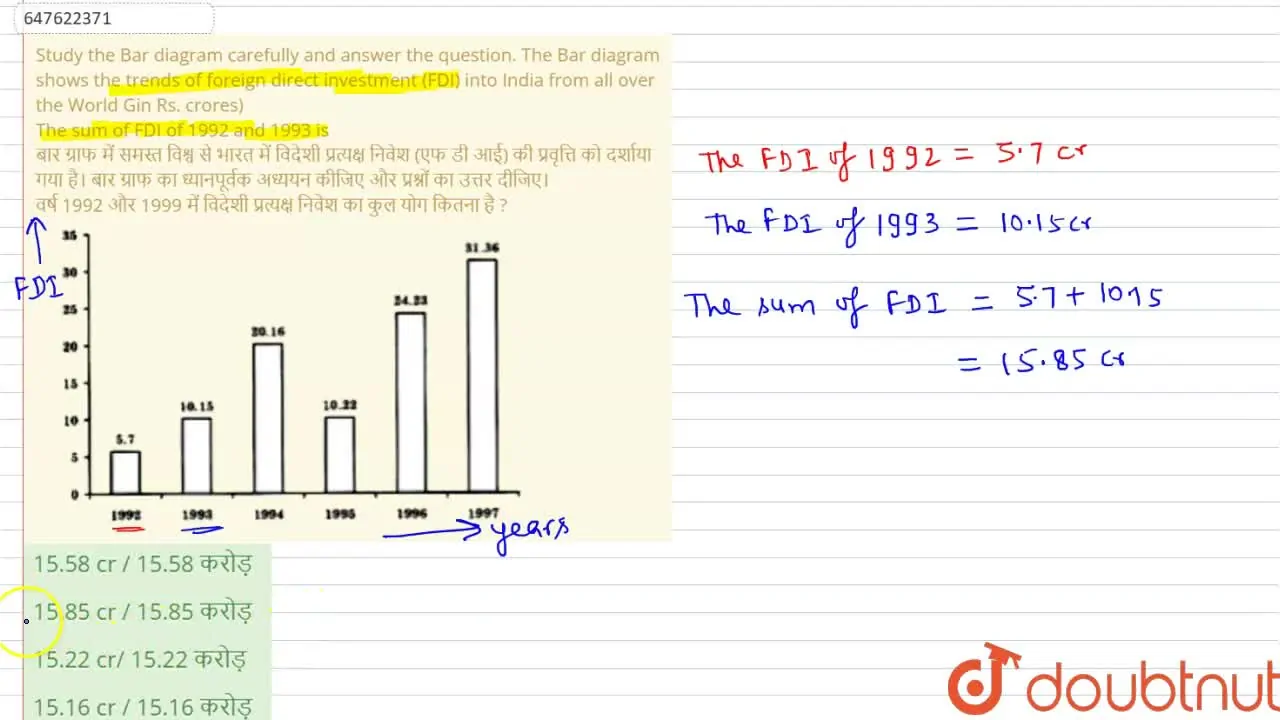 647622371
Study the Bar diagram carefully and answer the question. The Bar diagram
shows the trends of foreign direct investment (FDI) into India from all over
the World Gin Rs. crores)
The sum of FDI of 1992 and 1993 is
बार ग्राफ में समस्त विश्व से भारत में विदेशी प्रत्यक्ष निवेश (एफ डी आई) की प्रवृत्ति को दर्शाया
गया है। बार ग्राफ का ध्यानपूर्वक अध्ययन कीजिए और प्रश्नों का उत्तर दीजिए।
वर्ष 1992 और 1999 में विदेशी प्रत्यक्ष निवेश का कुल योग कितना है ?
FDI
35
30
25
20
15
10
5
0
5.7
10.15
20.16
10.22
24.23
31.36
1992 1993 1994 1995 1996 1997
years
15.58 cr / 15.58 करोड़
15.85 cr / 15.85 करोड़
15.22 cr/ 15.22 करोड़
15.16 cr / 15.16 करोड़
The FDI of 1992 = 5.7 cr
The FDI of 1993 = 10.15 cr
The sum of FDI = 5.7 + 10.15
= 15.85 cr
doubtnut